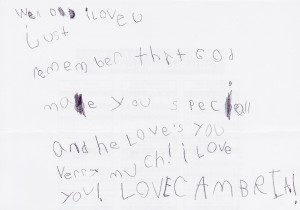 Well DAD i LOVE U
i just
remember that GOD
make you speciall
and he LOVE's YOU
verry much! i LOVE
YOU! LOVE CAMBRIA!